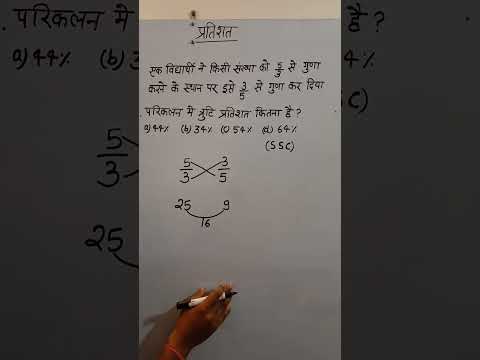 परिकलन में है ?
a) 44% (b) 3 64%
प्रतिशत
एक विद्यार्थी ने किसी संख्या को 5/3 से गुणा
करने के स्थान पर इसे 3/5 से गुणा कर दिया
परिकलन में त्रुटि प्रतिशत कितना है ?
a) 44% (b) 34% (c) 54% (d) 64%
(SSC)
5/3 3/5
25 9
16
25